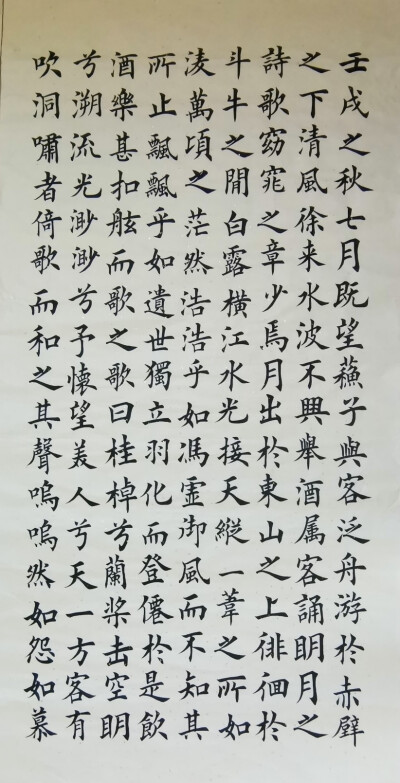 壬戌之秋七月既望蘓子與客泛舟游於赤壁
之下清風徐来水波不興舉酒属客誦明月之
詩歌窈窕之章少焉月出於東山之上徘徊於
斗牛之間白露橫江水光接天縱一葦之所如
淩萬頃之茫然浩浩乎如馮虛御風而不知其
所止飄飄乎如遺世獨立羽化而登僊於是飲
酒樂甚扣舷而歌之歌曰桂棹兮蘭桨击空明
兮溯流光渺渺兮予懷望美人兮天一方客有
吹洞嘯者倚歌而和之其聲嗚嗚然如怨如慕